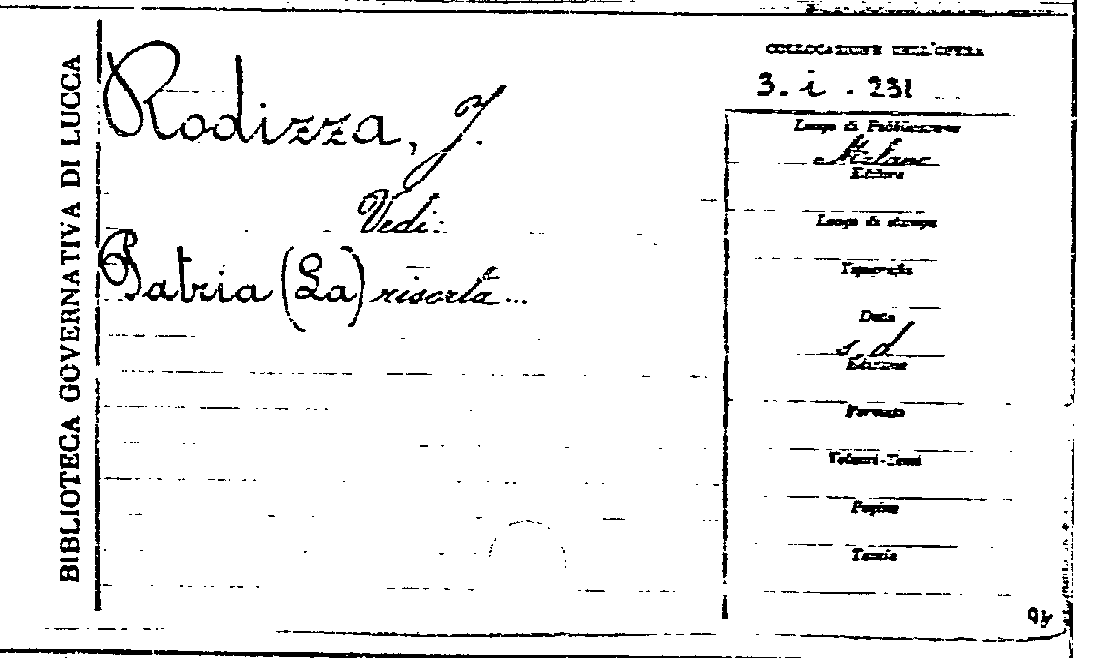 BIBLIOTECA GOVERNATIVA DI LUCCA
Rodizza, J.
Vedi:
Patria (La) risorta...
COLLOCAZIONE DELL'OPERA
3. i. 231
Luogo di Pubblicazione
Milano
Editore
Luogo di stampa
Tipografia
Data
s. d
Edizione
Formato
Volumi-Tomi
Pagine
Tavole